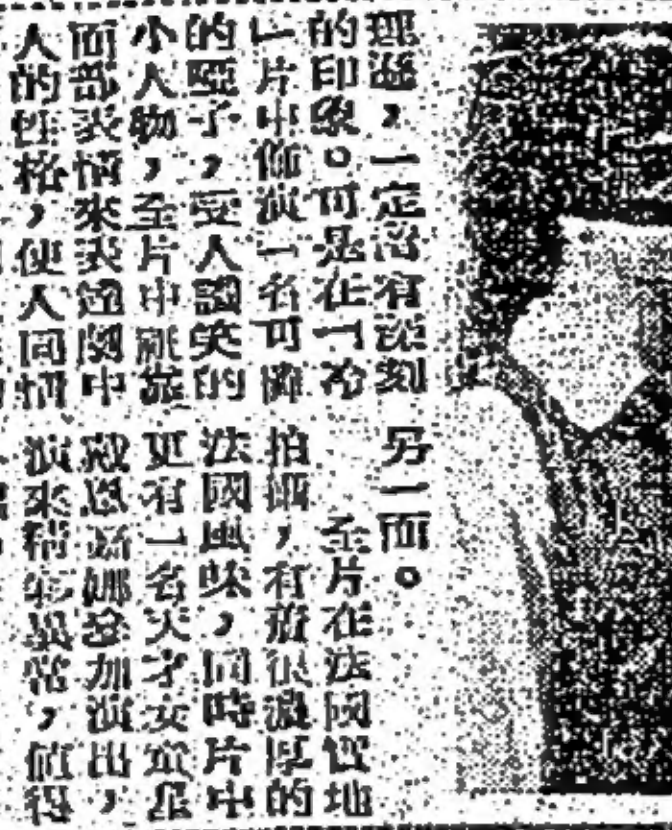 理遜，一定留有深刻
的印象。可是在「
」片中飾演一名可憐
的啞子，受人譏笑的
小人物，全片中祇靠
面部表情來表達劇中
人的性格，使人同情
另一面。
全片在法國實地
拍攝，有着很濃厚的
法國風味，同時片中
更有一名天才女童星
戴恩嘉娜參加演出，
演來精彩異常，值得